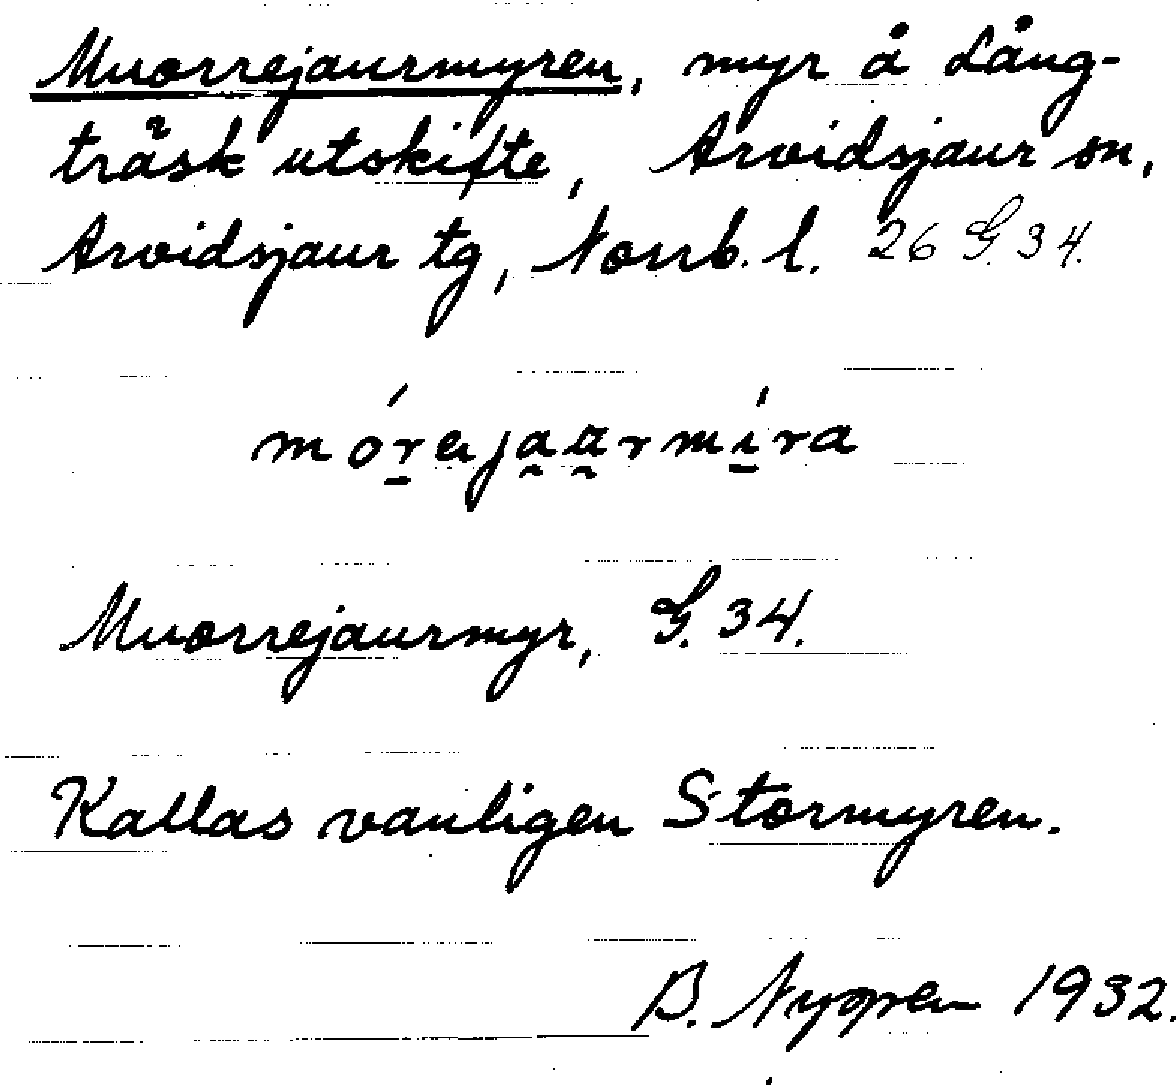 Muorrejaurmyren, myr å Lång-
träsk utskifte, Arvidsjaur sn,
Arvidsjaur tg, Norrb. l. 26 G. 34.
mór̲ɐja̰a̰rmí̲ra
Muorrejaurmyr, G. 34.
Kallas vanligen Stormyren.
B. Nygren 1932.